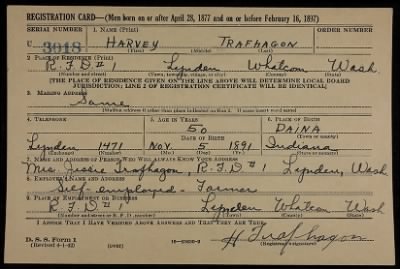 REGISTRATION CARD—(Men born on or after April 28, 1877 and on or before February 16, 1897)
SERIAL NUMBER 1. NAME (Print) ORDER NUMBER
U 3018 HARVEY TRAFHAGON
(First) (Middle) (Last)
2. PLACE OF RESIDENCE (Print)
R.F.D #1 Lynden Whatcom Wash.
(Number and street) (Town, township, village, or city) (County) (State)
[THE PLACE OF RESIDENCE GIVEN ON THE LINE ABOVE WILL DETERMINE LOCAL BOARD
JURISDICTION; LINE 2 OF REGISTRATION CERTIFICATE WILL BE IDENTICAL]
3. MAILING ADDRESS
Same
[Mailing address if other than place indicated on line 2. If same insert word same]
4. TELEPHONE 5. AGE IN YEARS 6. PLACE OF BIRTH
50 PAINA
DATE OF BIRTH (Town or county)
Lynden 1471 Nov. 5 1891 Indiana
(Exchange) (Number) (Mo.) (Day) (Yr.) (State or country)
7. NAME AND ADDRESS OF PERSON WHO WILL ALWAYS KNOW YOUR ADDRESS
Mrs. Jessie Trafhagon, R.F.D #1 Lynden, Wash.
8. EMPLOYER'S NAME AND ADDRESS
Self-employed - Farmer
9. PLACE OF EMPLOYMENT OR BUSINESS
R.F.D #1 Lynden Whatcom Wash
(Number and street or R. F. D. number) (Town) (County) (State)
I AFFIRM THAT I HAVE VERIFIED ABOVE ANSWERS AND THAT THEY ARE TRUE.
D. S. S. Form 1 H Trafhagon
(Revised 4-1-42) (over) (Registrant's signature)